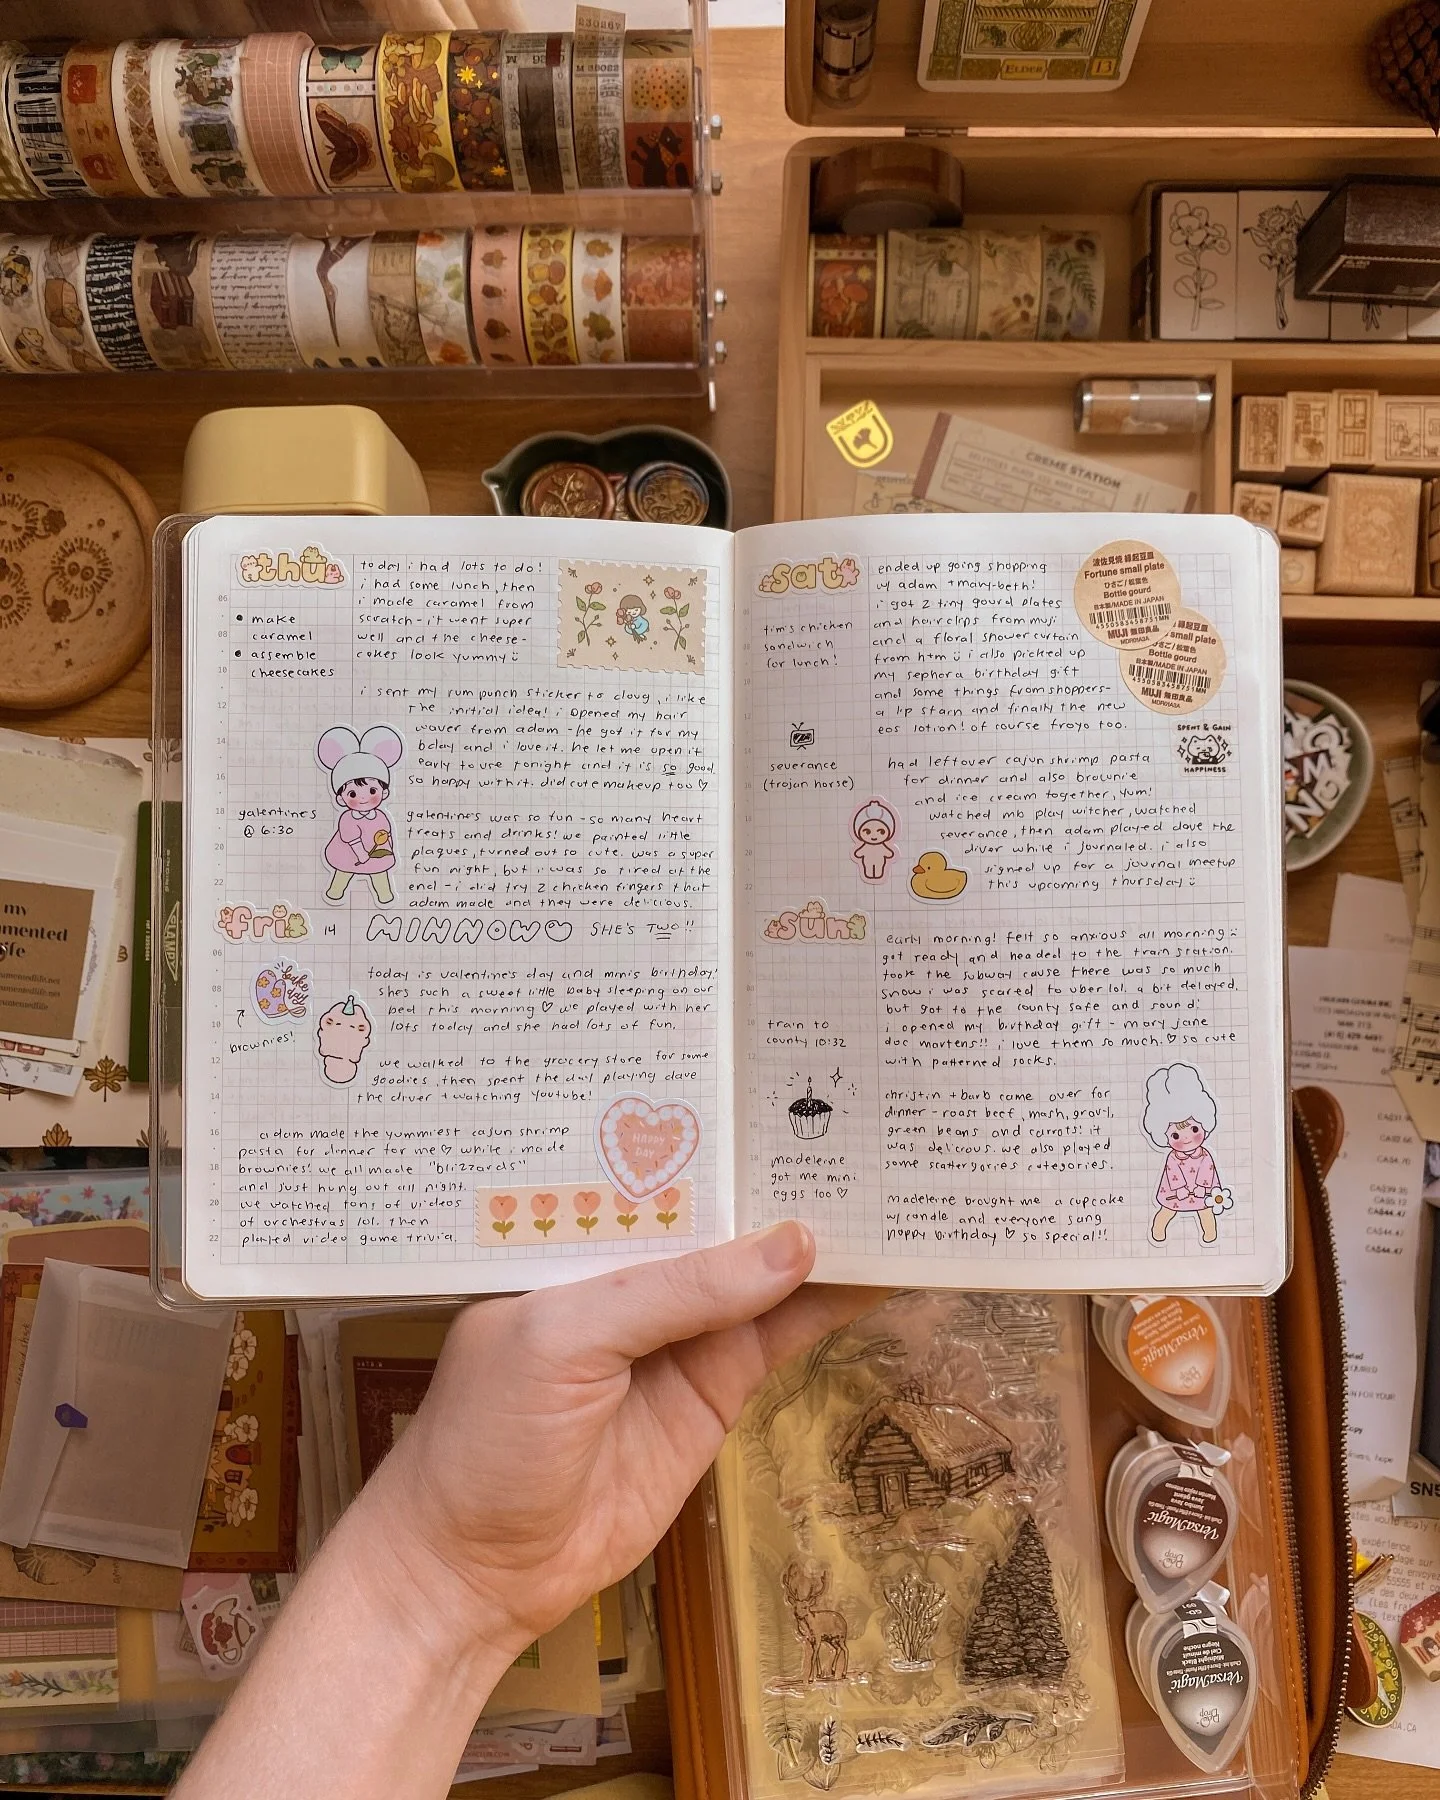 230267
ELDER
13
CREME STATION
thu
• make
caramel
• assemble
cheesecakes
today i had lots to do!
i had some lunch, then
i made caramel from
scratch - it went super
well and the cheese-
cakes look yummy
i sent my rum punch sticker to doug, i like
the initial idea! i opened my hair
waver from adam - he got it for my
bday and i love it. he let me open it
early to use tonight and it is so good
so happy with it. did cute makeup too ♡
galentines
@ 6:30
galentine's was so fun - so many heart
treats and drinks! we painted little
plaques, turned out so cute. was a super
fun night, but i was so tired at the
end - i did try 2 chicken fingers that
adam made and they were delicious.
fri
14
MINNOW ♡ SHE'S TWO!!
bake day
brownies!
today is valentine's day and min's birthday!
she's such a sweet little baby sleeping on our
bed this morning ♡ we played with her
lots today and she had lots of fun.
we walked to the grocery store for some
goodies, then spent the day playing dave
the diver + watching youtube!
adam made the yummiest cajun shrimp
pasta for dinner for me ♡ while i made
brownies! we all made "blizzards"
and just hung out all night.
we watched tons of videos
of orchestras lol. then
played video game trivia.
HAPPY
DAY
06
08
10
12
14
16
18
20
22
sat
tim's chicken
sandwich
for lunch!
severance
(trojan horse)
ended up going shopping
w/ adam + mary-beth!
i got 2 tiny gourd plates
and hairclips from muji
and a floral shower curtain
from h+m i also picked up
my sephora birthday gift
and some things from shoppers-
a lip stain and finally the new
eos lotion! of course froyo too.
波佐見焼 縁起豆皿
Fortune small plate
ひさご/松葉色
Bottle gourd
日本製/MADE IN JAPAN
4550583458751MN
MUJI 無印良品
MDR01A3A
縁起豆皿
small plate
ひさご/松葉色
Bottle gourd
日本製/MADE IN JAPAN
4550583458751MN
MUJI 無印良品
MDR01A3A
SPENT & GAIN
HAPPINESS
had leftover cajun shrimp pasta
for dinner and also brownie
and ice cream together, yum!
watched mb play witcher, watched
severance, then adam played dave the
diver while i journaled. i also
signed up for a journal meetup
this upcoming thursday
sun
train to
county 10:32
madeleine
got me mini
eggs too ♡
early morning! felt so anxious all morning
got ready and headed to the train station.
took the subway cause there was so much
snow i was scared to uber lol. a bit delayed,
but got to the county safe and sound!
i opened my birthday gift - mary jane
doc martens!! i love them so much. ♡ so cute
with patterned socks.
christin + barb came over for
dinner - roast beef, mash, gravy,
green beans and carrots! it
was delicious. we also played
some scattergories categories.
madeleine brought me a cupcake
w/ candle and everyone sang
happy birthday ♡ so special!!
my
life
VersaMagic
VersaMagic
Jumbo Java
VersaMagic
Midnight Black